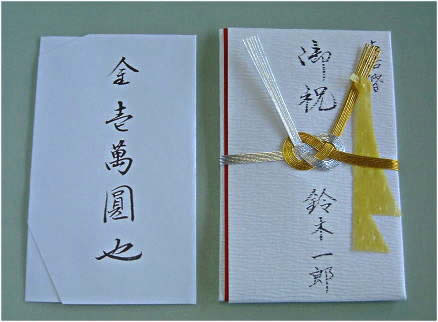 金壱萬圓也
御祝
鈴木一郎